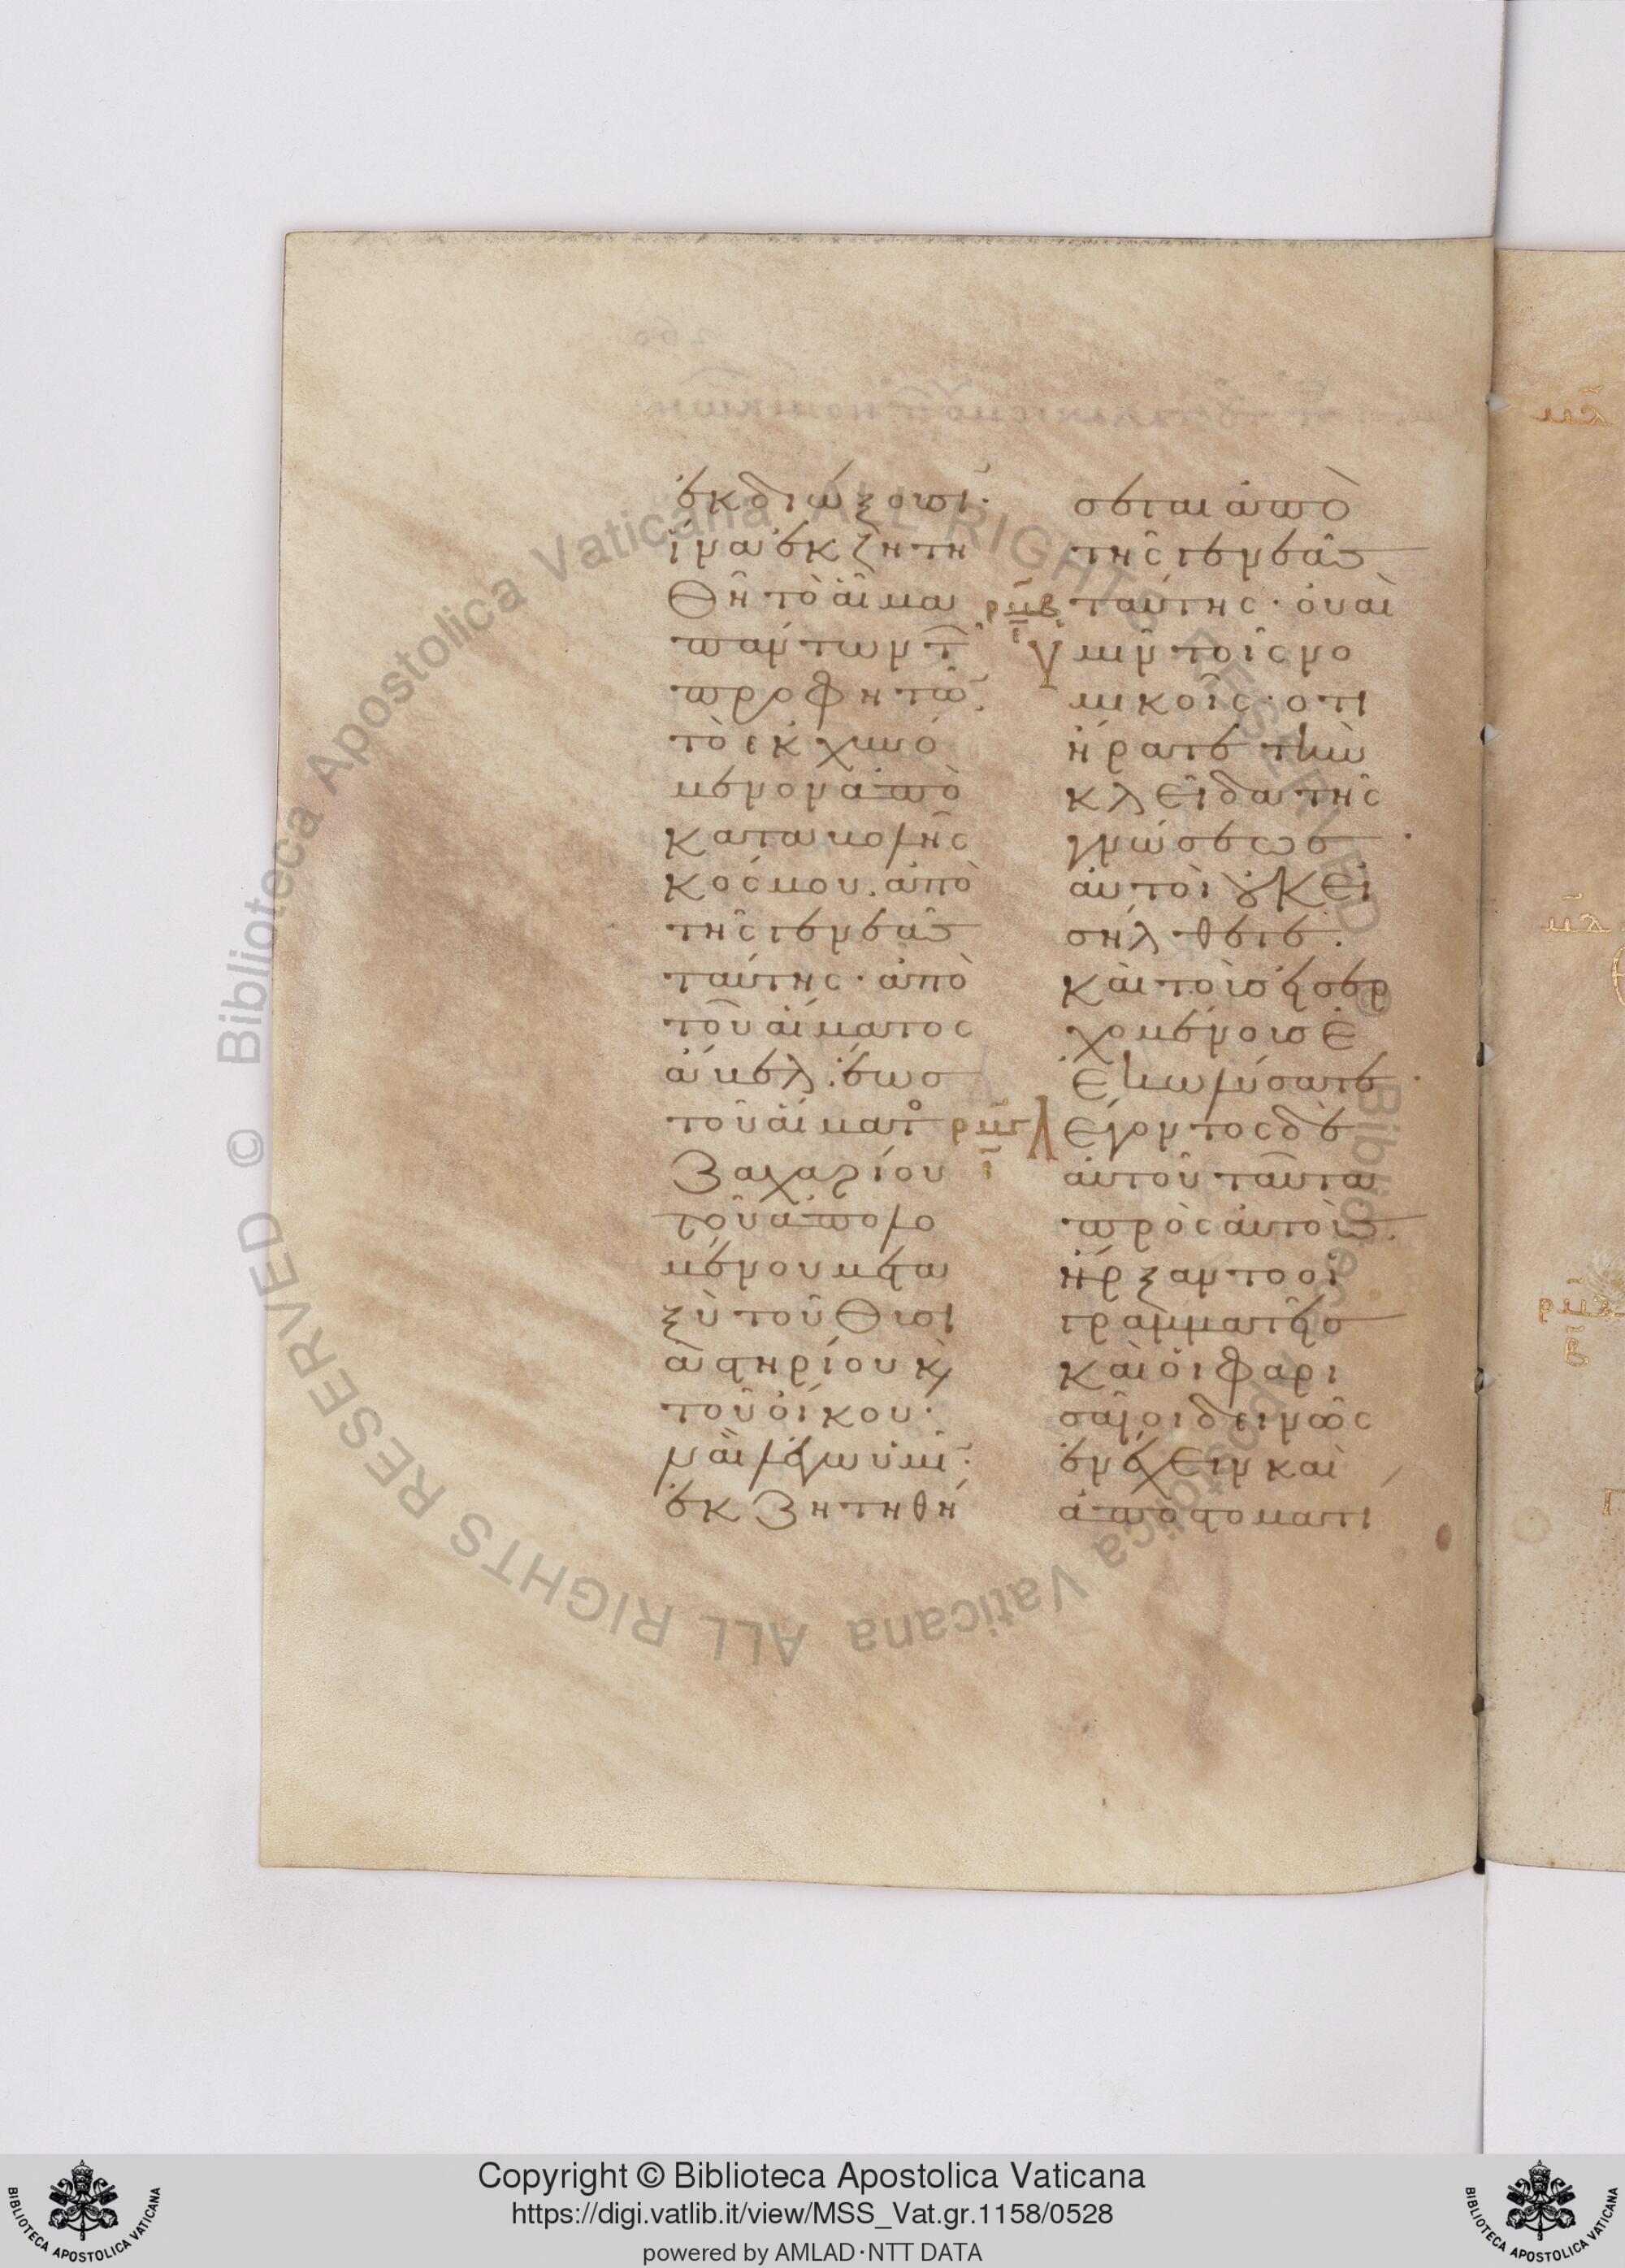 ἐκδιώξουσῖ·
ἵνα ἐκζητη
θῆ τὸ αἷμα
πάντων τ̑
προφητῶ̄.
τὸ ἐκχυνό
μενον ἀπὸ
καταβολῆς
κόσμου. ἀπὸ
τῆς γενεᾶς
ταύτης· ἀπὸ
τοῦ αἵματος
ἄβελ. ἕως
τοῦ αἵματο
Ζαχαρίου
τοῦ ἀπολο
μένου μετα
ξὺ τοῦ θυσι
αστηρίου κ̀
τοῦ οἴκου·
ναὶ λέγω ὑμῖ̄·
ἐκζητηθή
σεται ἀπὸ
τῆς γενεᾶς
ρμβ ταύτης· οὐαὶ
ι ὑμῖν τοῖς νο
μικοῖς· ὅτι
ἤρατε τὴν
κλεῖδα τῆς
γνώσεως·
αὐτοὶ οὐκ εἰ
σήλθετε.
καὶ τοὺς εἰσερ
χομένους ἐ
κωλύσατε·
ρμγ λέγοντος δὲ
ι αὐτοῦ ταῦτα
πρὸς αὐτούς.
ἤρξαντο οἱ
γραμματεῖς
καὶ οἱ φαρι
σαῖοι δεινῶς
ἐνέχειν καὶ
ἀποστοματι
Copyright © Biblioteca Apostolica Vaticana
https://digi.vatlib.it/view/MSS_Vat.gr.1158/0528
powered by AMLAD·NTT DATA